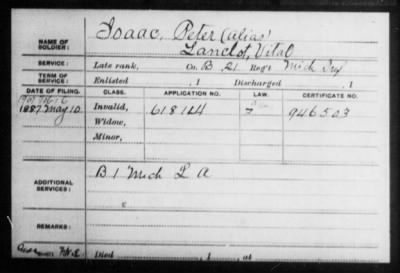 Isaac, Peter (alias)
NAME OF SOLDIER: Lanclot, Vital
SERVICE: Late rank, Co. B 21 Reg't Mich Inf
TERM OF SERVICE: Enlisted , 1 Discharged , 1
DATE OF FILING. CLASS. APPLICATION NO. LAW. CERTIFICATE NO.
1887 May 10. Invalid, 618144 946503
Widow,
Minor,
ADDITIONAL SERVICES: B 1 Mich L A
REMARKS:
Died , 1 , at